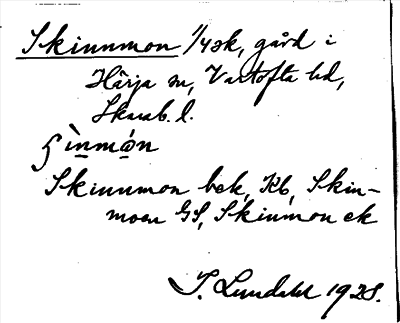 Skinnmon 1/4 sk, gård i
Härja sn, Vartofta hd,
Skarab. l.
Skinnmon bek, Kb, Skin-
moen GS, Skinmon ek
I. Lundahl 1928.